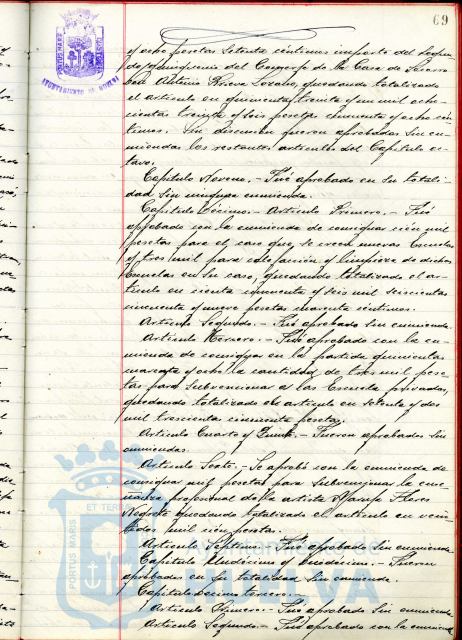 69
PORTUS MARIS
AYUNTAMIENTO DE HUELVA
y ocho pesetas setenta céntimos importe del segun-
do quinquenio del Conserje de la Casa de Socorro
Don Antonio Lozano, quedando totalizado
el artículo en quinientas treinta y un mil ocho-
cientas treinta y seis pesetas cincuenta y ocho cén-
timos. Sin discusión fueron aprobados sin en-
miendas los restantes artículos del Capítulo oc-
tavo.
Capítulo Noveno.- Fué aprobado en su totali-
dad sin ninguna enmienda.
Capítulo Décimo.- Artículo Primero.- Fué
aprobado con la enmienda de consignar cien mil
pesetas para el caso que se creen nuevas Escuelas
y tres mil para calefacción y limpieza de dichas
Escuelas en su caso, quedando totalizado el ar-
tículo en ciento cincuenta y seis mil seiscientas
cincuenta y nueve pesetas noventa céntimos.
Artículo Segundo.- Fué aprobado sin enmienda
Artículo Tercero.- Fué aprobado con la en-
mienda de consignar en la partida quinientas
noventa y ocho la cantidad de tres mil pese-
tas para subvencionar a las Escuelas privadas,
quedando totalizado el artículo en setenta y dos
mil trescientas cincuenta pesetas.
Artículo Cuarto y Quinto.- Fueron aprobados sin
enmiendas.
Artículo Sexto.- Se aprobó con la enmienda de
consignar mil pesetas para subvencionar la ense-
ñanza profesional de la artista Flores
Negrete quedando totalizado el artículo en
mil cien pesetas.
Artículo Septimo.- Fué aprobado sin enmienda
Capítulo Undécimo y Duodécimo.- Fueron
aprobados en su totalidad sin enmienda.
Capítulo Décimo tercero.-
Artículo Primero.- Fué aprobado sin enmienda
Artículo Segundo.- Fué aprobado con la enmienda
PORTUS MARIS ET TERRAE
Ayuntamiento de
HUELVA